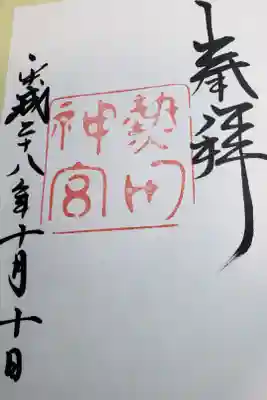 奉拝
熱田神宮
平成二十八年十月十日